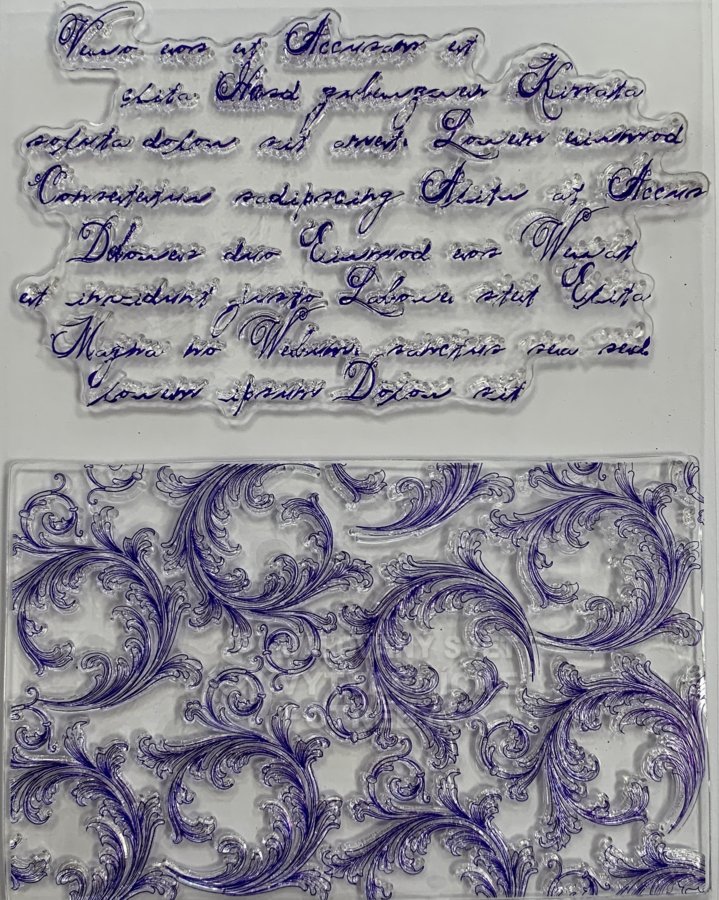 Vero eos et Accusam et
clita Hasd gubergren Kirmata
soluta dolor sit amet. Lorem eiusmod
Consetetur sadipscing Alitr at Accus
Dolores duo Eiusmod eos Veniat
et invidunt justo Labore stet Elita
Magna no Vebum. sanctus sea sed
lorem ipsum Dolor sit